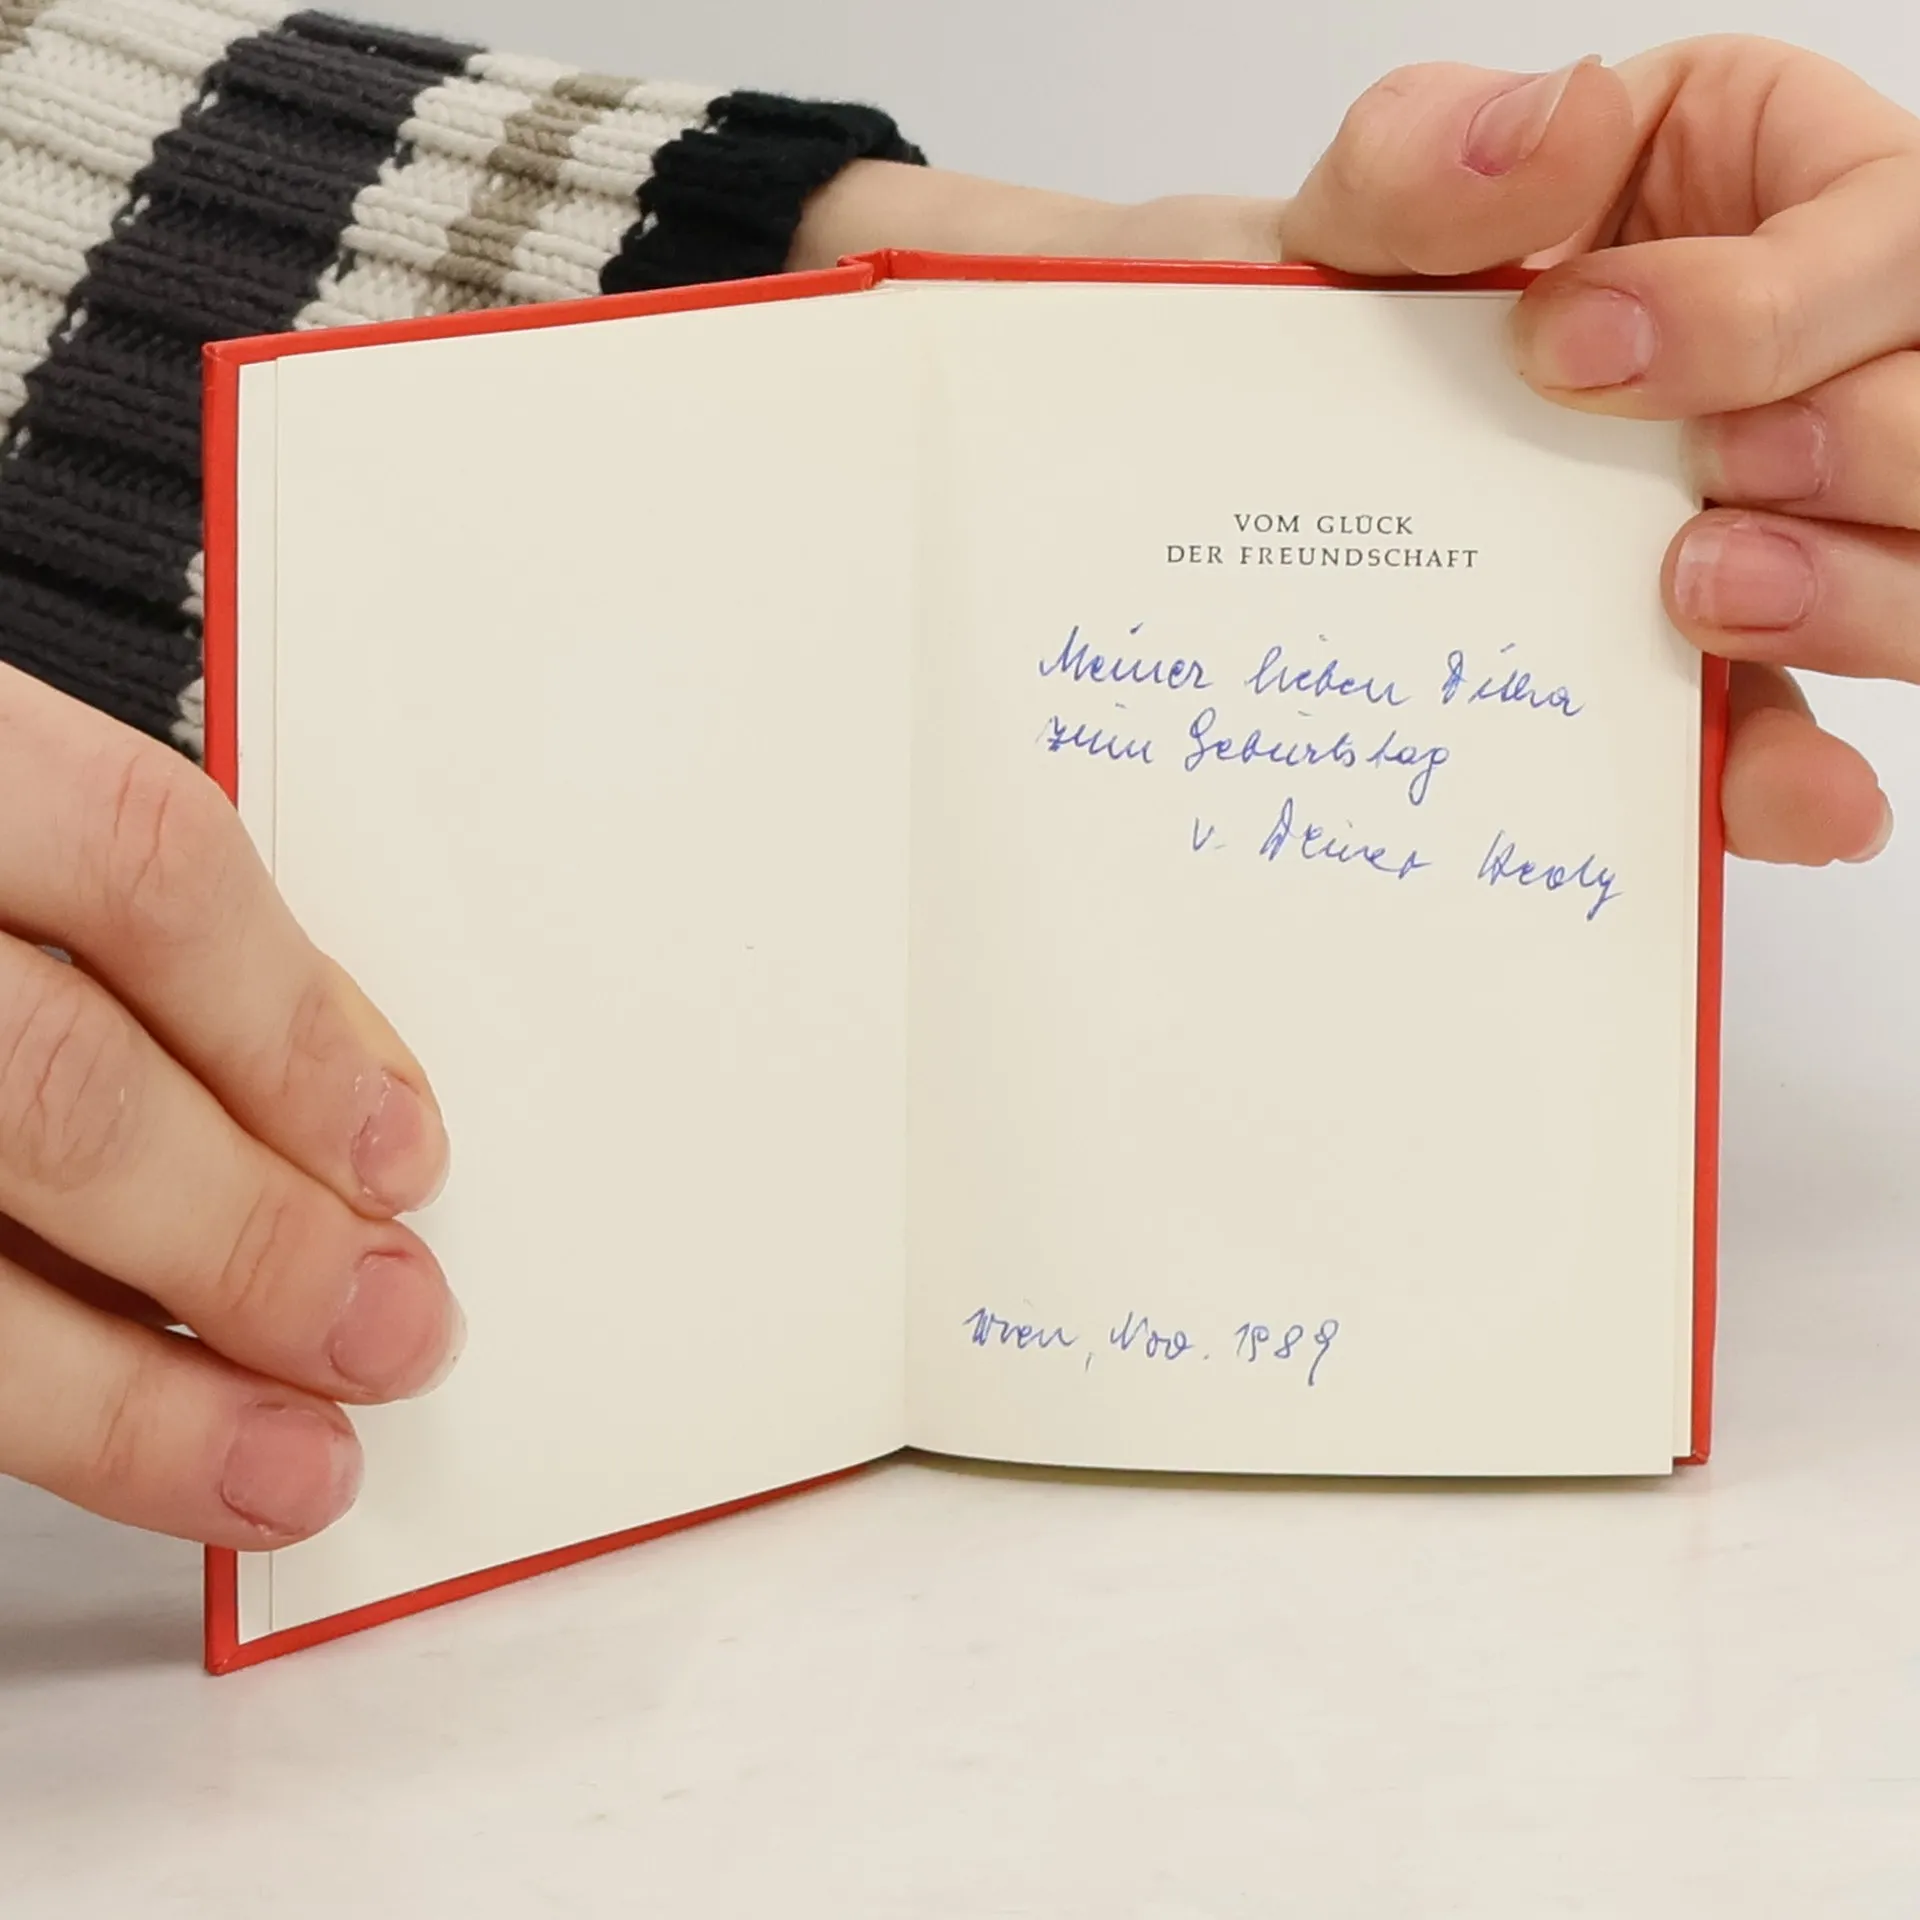 VOM GLÜCK
DER FREUNDSCHAFT
Meiner lieben Ditha
zum Geburtstag
v. Deiner
Wien, Nov. 1989